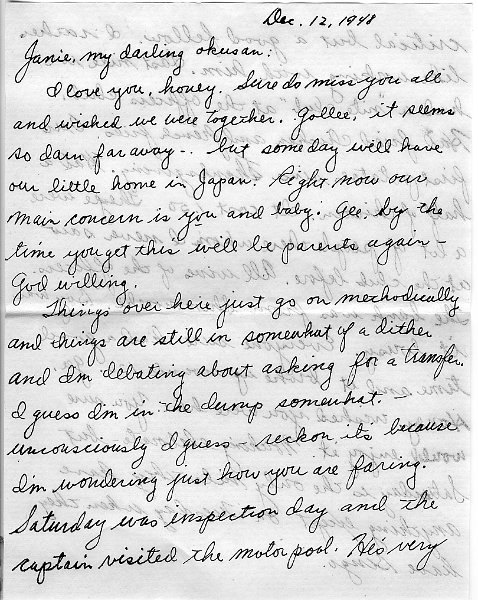 Dec. 12, 1948
Janie, my darling okusan:
I love you, honey. Sure do miss you all
and wished we were together. Gollee, it seems
so darn far away-. but someday we'll have
our little home in Japan. Right now our
main concern is you and baby. Gee, by the
time you get this we'll be parents again -
God willing.
Things over here just go on methodically
and things are still in somewhat of a dither
and I'm debating about asking for a transfer.
I guess I'm in the dump somewhat. -
unconsciously I guess - reckon it's because
I'm wondering just how you are faring.
Saturday was inspection day and the
captain visited the motor pool. He's very